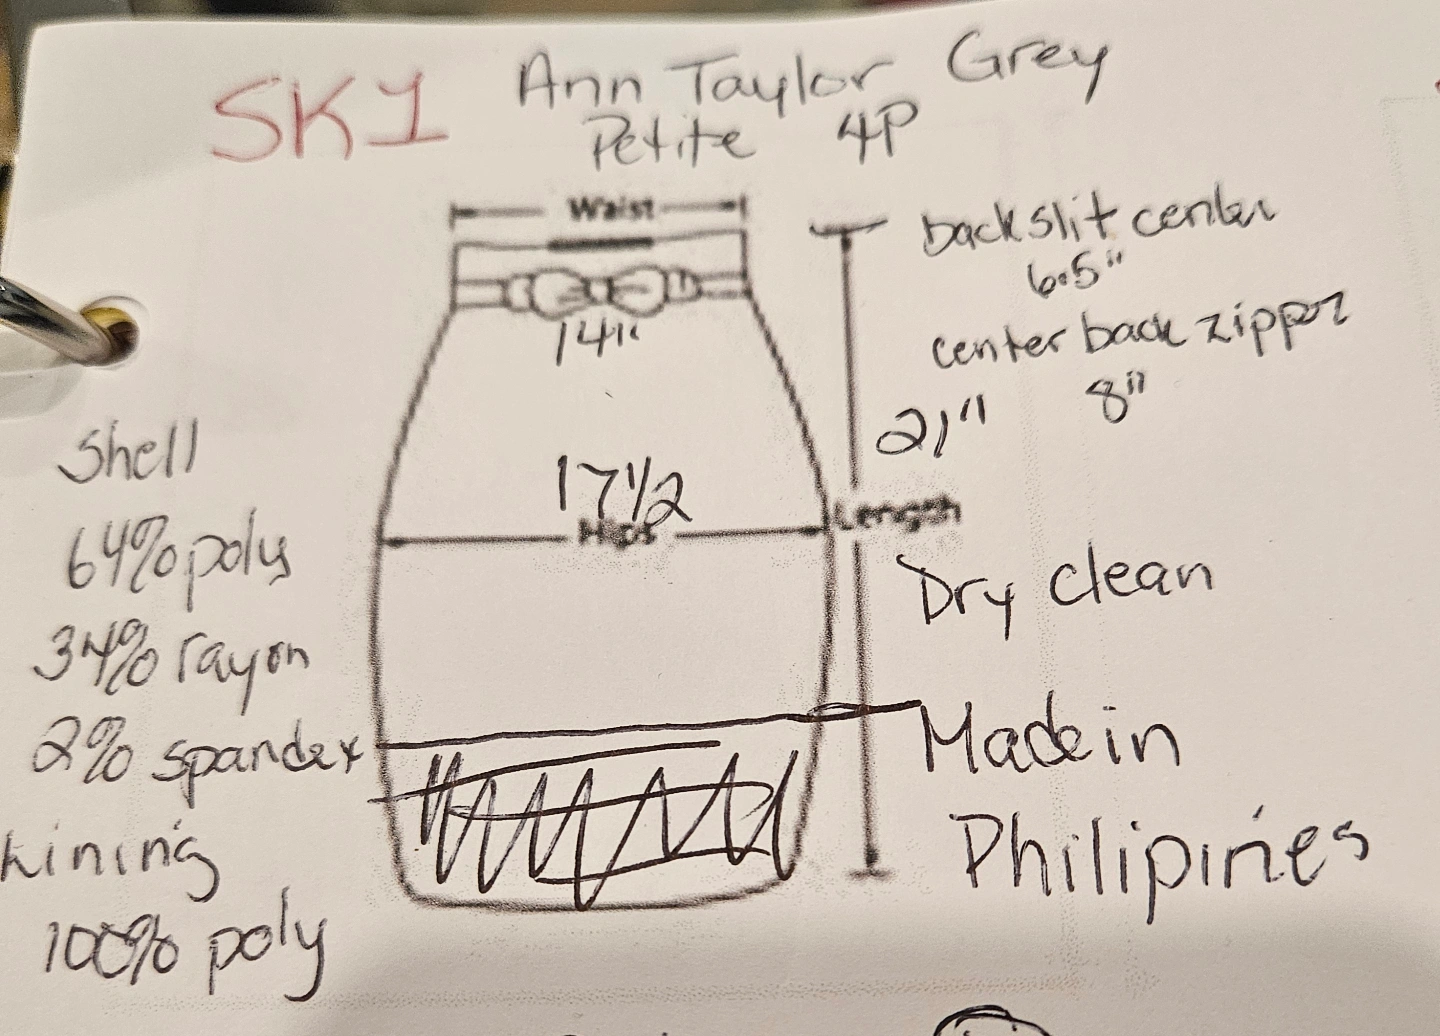 SK1
Ann Taylor Grey
Petite 4P
Waist
14"
back slit center
6.5"
center back zipper
8"
21"
17 1/2
Hips
Length
Shell
64% poly
34% rayon
2% spandex
Lining
100% poly
Dry clean
Made in
Philipines